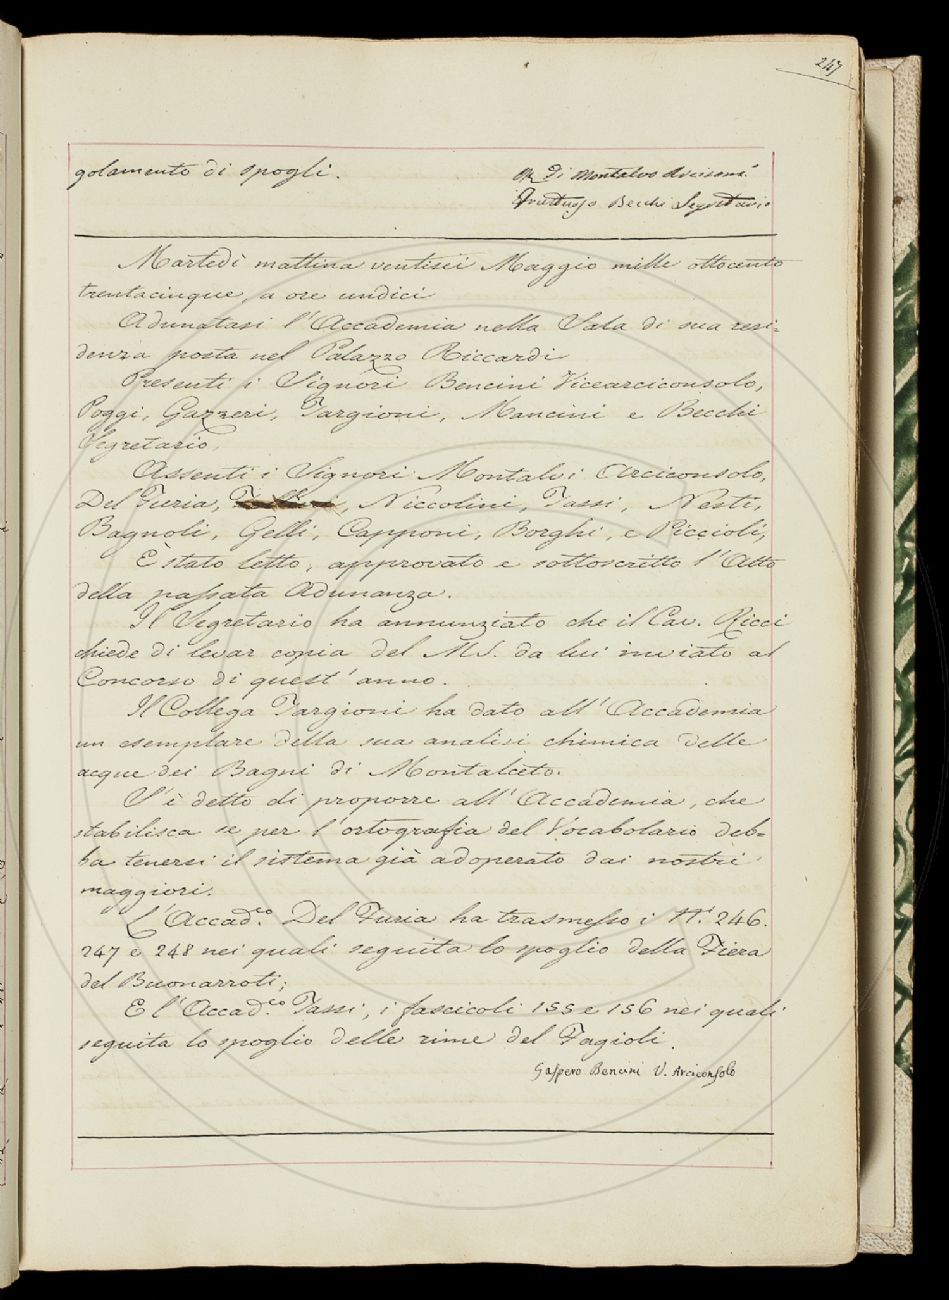 247
golamento di spogli.
Di Montalvo Arciconso
Fruttuoso Becchi Segretario
Martedì mattina ventisei Maggio mille ottocento
trentacinque, a ore undici
Adunatasi l'Accademia nella Sala di sua resi-
denza posta nel Palazzo Riccardi
Presenti i Signori Bencini Vicearciconsolo,
Poggi, Gazzeri, Targioni, Mancini e Becchi
Segretario.
Assenti i Signori Montalvi Arciconsolo,
Del Furia, Niccolini, Tassi, Nesti,
Bagnoli, Gelli, Capponi, Borghi, e Piccioli,
È stato letto, approvato e sottoscritto l'Atto
della passata Adunanza.
Il Segretario ha annunziato che il Cav. Ricci
chiede di levar copia del MS. da lui inviato al
Concorso di quest'anno.
Il Collega Targioni ha dato all'Accademia
un esemplare della sua analisi chimica delle
acque dei Bagni di Montalceto.
S'è detto di proporre all'Accademia, che
stabilisca se per l'ortografia del Vocabolario deb-
ba tenersi il sistema già adoperato dai nostri
maggiori.
L'Accad.co Del Furia ha trasmesso i N.i 246.
247 e 248 nei quali seguita lo spoglio della Fiera
del Buonarroti;
E l'Accad.co Tassi, i fascicoli 155 e 156 nei quali
seguita lo spoglio delle rime del Fagioli.
Gaspero Bencini V. Arciconsolo